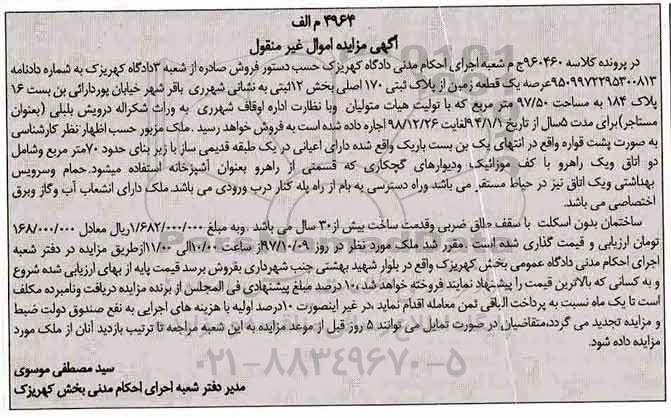 ۴۹۶۴ م الف
آگهی مزایده اموال غیر منقول
در پرونده کلاسه ۹۶۰۴۶۰ج م شعبه اجرای احکام مدنی دادگاه کهریزک حسب دستور فروش صادره از شعبه ۳دادگاه کهریزک به شماره دادنامه
۹۵۰۹۹۷۲۲۹۵۳۰۰۸۱۳عرصه یک قطعه زمین از پلاک ثبتی ۱۷۰ اصلی بخش ۱۲ثبتی به نشانی شهرری باقر شهر خیابان پوردارائی بن بست ۱۶
پلاک ۱۸۴ به مساحت ۹۷/۵۰ متر مربع که با تولیت هیات متولیان وبا نظارت اداره اوقاف شهرری به وراث شکراله درویش بلبلی (بعنوان
مستاجر)برای مدت ۵سال از تاریخ ۹۴/۱/۱لغایت ۹۸/۱۲/۲۶ اجاره داده شده است به فروش خواهد رسید .ملک مزبور حسب اظهار نظر کارشناسی
به صورت پشت قواره واقع در انتهای یک بن بست باریک واقع شده دارای اعیانی در یک طبقه قدیمی ساز با زیر بنای حدود ۷۰متر مربع وشامل
دو اتاق ویک راهرو با کف موزائیک ودیوارهای گچکاری که قسمتی از راهرو بعنوان آشپزخانه استفاده میشود.حمام وسرویس
بهداشتی ویک اتاق نیز در حیاط مستقر می باشد وراه دسترسی به بام از راه پله کنار درب ورودی می باشد. ملک دارای انشعاب آب وگاز وبرق
اختصاصی می باشد.
ساختمان بدون اسکلت با سقف طاق ضربی وقدمت ساخت بیش از۳۰ سال می باشد .وبه مبلغ ۱/۶۸۲/۰۰۰/۰۰۰ریال معادل ۱۶۸/۰۰۰/۰۰۰
تومان ارزیابی و قیمت گذاری شده است .مقرر شد ملک مورد نظر در روز ۹۷/۱۰/۰۹از ساعت ۱۰/۰۰الی ۱۱/۰۰ازطریق مزایده در دفتر شعبه
اجرای احکام مدنی دادگاه عمومی بخش کهریزک واقع در بلوار شهید بهشتی جنب شهرداری بفروش برسد قیمت پایه از بهای ارزیابی شده شروع
و به کسانی که بالاترین قیمت را پیشنهاد نمایند فروخته خواهد شد،۱۰ درصد مبلغ پیشنهادی فی المجلس از برنده مزایده دریافت ونامبرده مکلف
است تا یک ماه نسبت به پرداخت الباقی ثمن معامله اقدام نماید ،در غیر اینصورت ۱۰درصد اولیه با هزینه های اجرایی به نفع صندوق دولت ضبط
و مزایده تجدید می گردد،متقاضیان در صورت تمایل می توانند ۵ روز قبل از موعد مزایده به این شعبه مراجعه تا ترتیب بازدید آنان از ملک مورد
مزایده داده شود.
سید مصطفی موسوی
مدیر دفتر شعبه اجرای احکام مدنی بخش کهریزک
۰۲۱-۸۸۳۴۹۶۷۰-۵